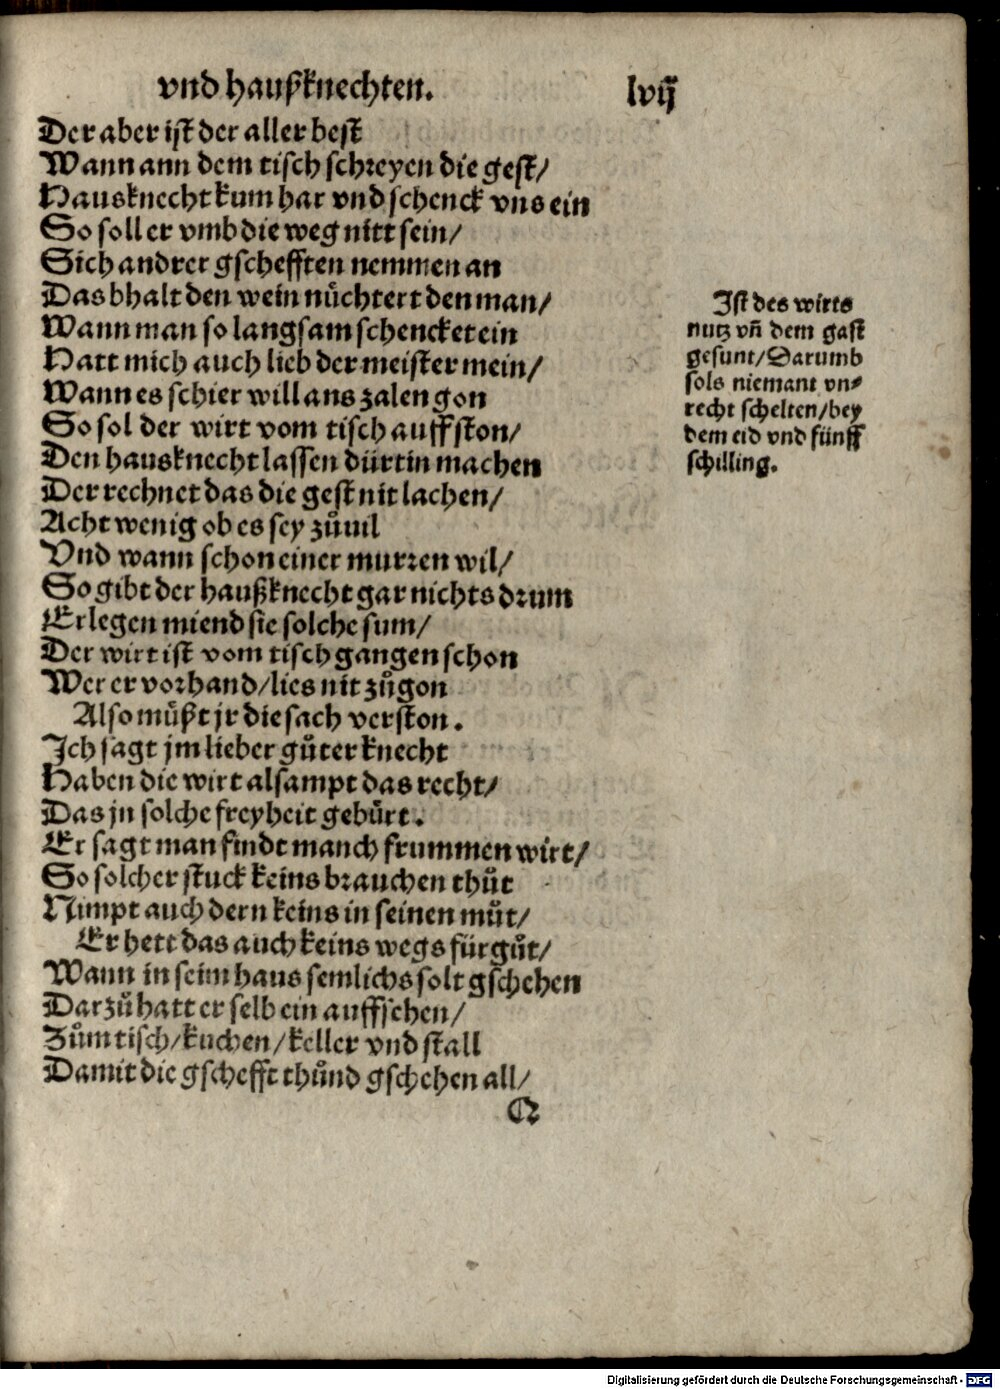 vnd haußknechten. lvij
Der aber ist der aller best
Wann ann dem tisch schreyen die gest/
Hausknecht kum har vnd schenck vns ein
So soll er vmb die weg nitt sein/
Sich andrer gschefften nemmen an
Das bhalt den wein nüchtert den man/
Wann man so langsam schencket ein
Hatt mich auch lieb der meister mein/
Wann es schier will ans zalen gon
So sol der wirt vom tisch auffston/
Den hausknecht lassen dürtin machen
Der rechnet das die gest nit lachen/
Acht wenig ob es sey zůuil
Vnd wann schon einer murren wil/
So gibt der haußknecht gar nichts drum
Erlegen miend sie solche sum/
Der wirt ist vom tisch gangen schon
Wer er vorhand/lies nit zůgon
Also müßt jr die sach verston.
Ich sagt jm lieber gůter knecht
Haben die wirt alsampt das recht/
Das jn solche freyheit gebürt.
Er sagt man findt manch frummen wirt/
So solcher stuck keins brauchen thůt
Nimpt auch dern keins in seinen můt/
Er hett das auch keins wegs für gůt/
Wann in seim haus semlichs solt gschehen
Darzů hatt er selb ein auffsehen/
Zům tisch/kuchen/keller vnd stall
Damit die gschefft thůnd gschehen all/
Q
Ist des wirts
nutz vñ dem gast
gesunt/Darumb
sols niemant vn⸗
recht schelten/bey
dem eid vnd fünff
schilling.
Digitalisierung gefördert durch die Deutsche Forschungsgemeinschaft - DFG